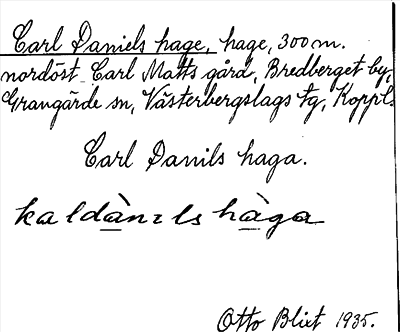 Carl Daniels hage, hage, 300 m.
nordöst Carl Matts gård, Bredberget by,
Grangärde sn, Västerbergslags tg, Koppl.
Carl Danils haga.
kaldànɩls hàga
Otto Blixt 1935.